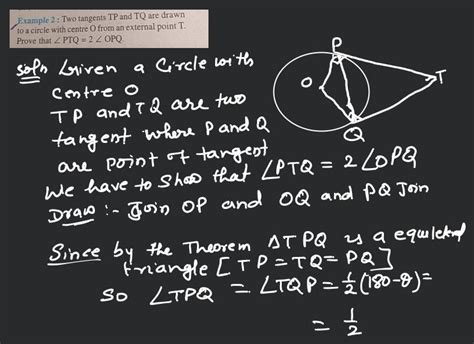 Example 2 : Two tangents TP and TQ are drawn
to a circle with centre O from an external point T.
Prove that ∠ PTQ = 2 ∠ OPQ.
Soln Given a Circle with
centre O
TP and TQ are two
tangent where P and Q
are point of tangent
We have to Shoo that ∠PTQ = 2∠OPQ
Draw :- Join OP and OQ and PQ Join
Since by the Theorem ΔTPQ is a
triangle [TP = TQ = PQ]
so ∠TPQ = ∠TQP = 1/2(180-θ) =
= 1/2
P
O
T
Q